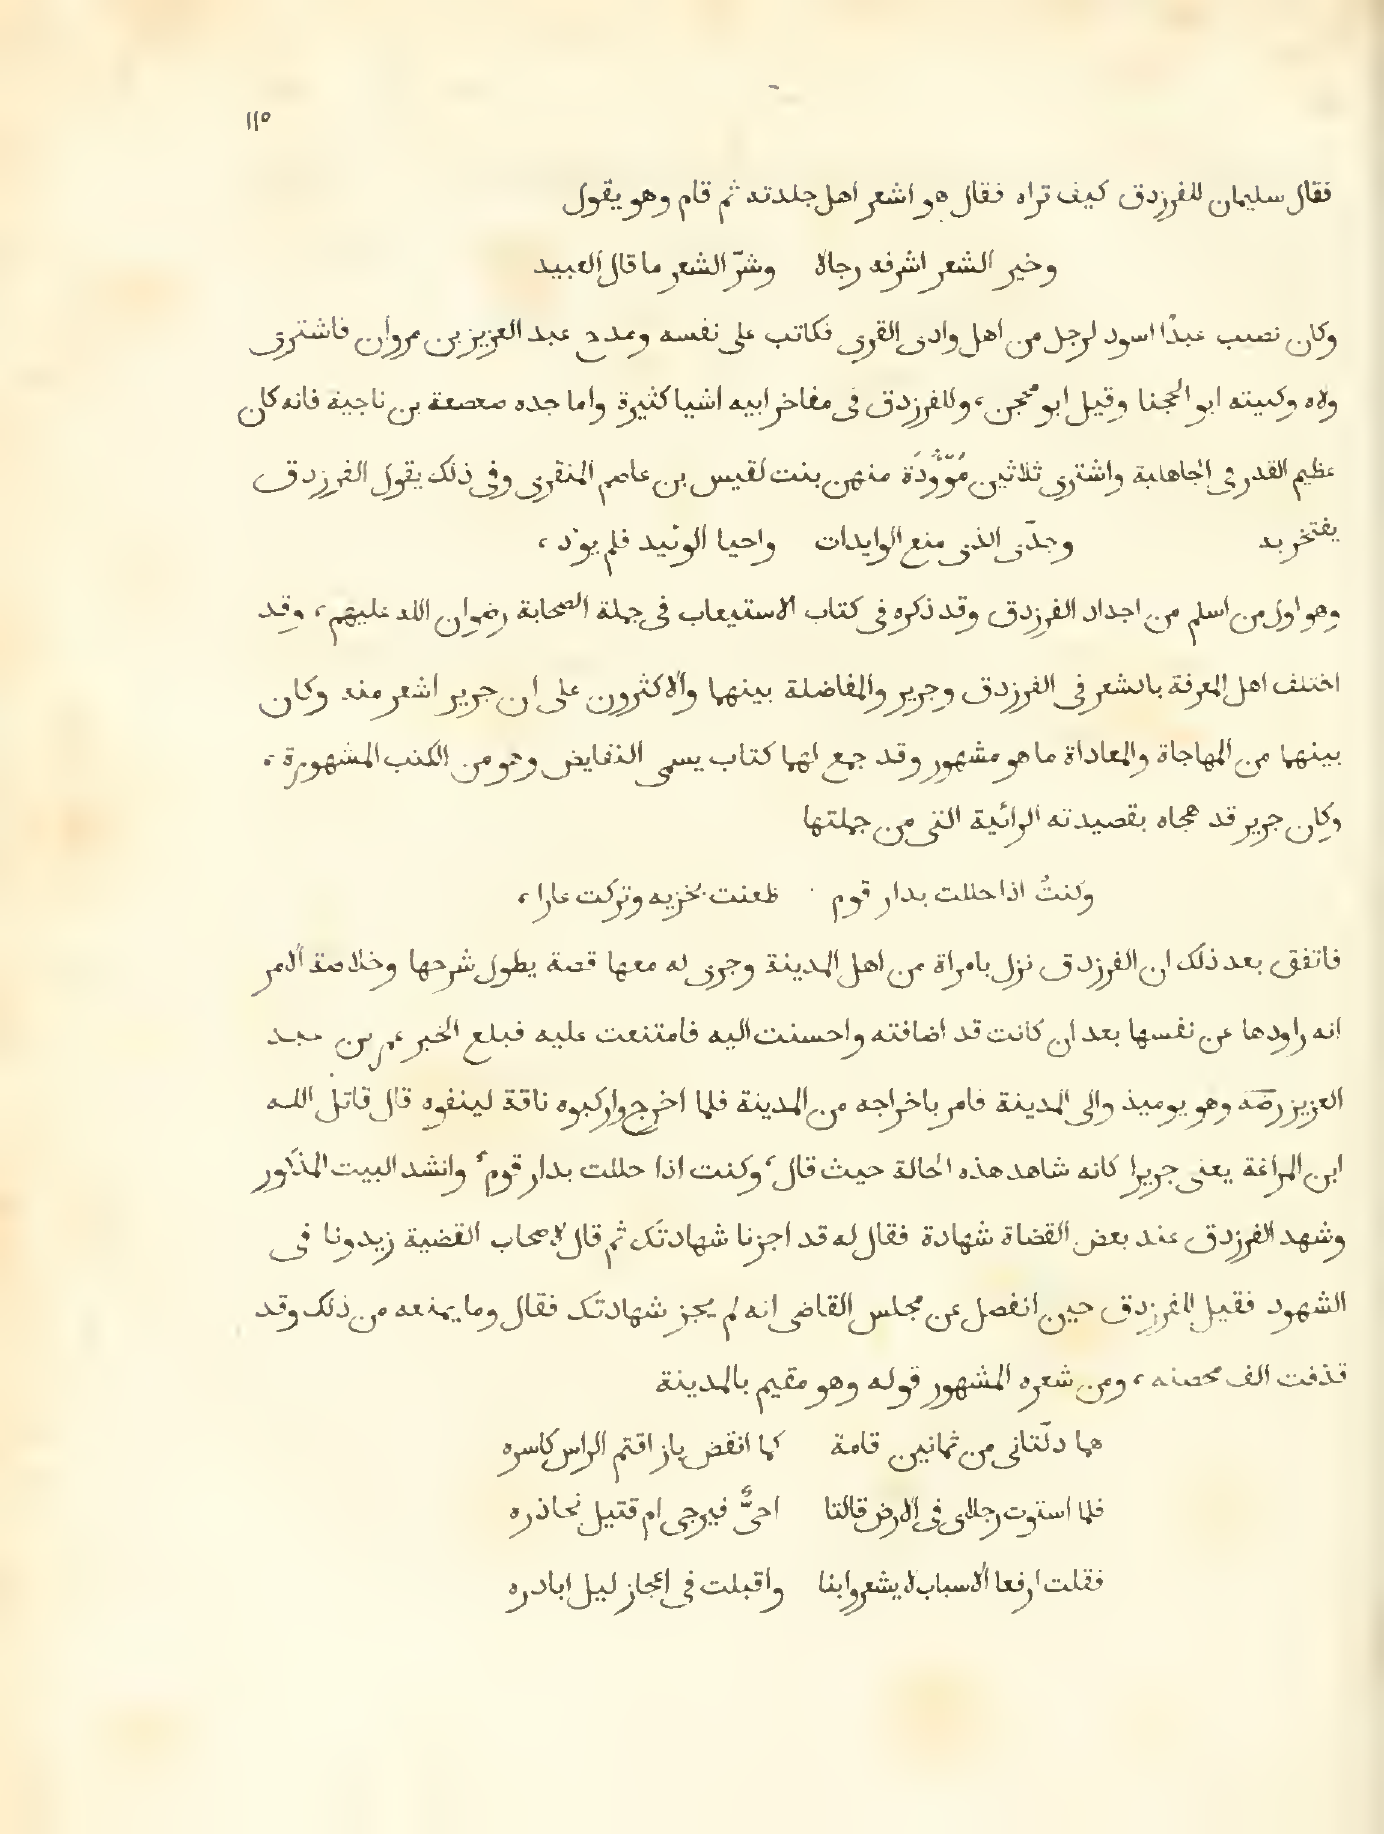 ١١٥
فقال سليمان للفرزدق كيف تراه فقال هو اشعر اهل جلدته ثم قام وهو يقول
وخير الشعر اشرفه رجالا وشرّ الشعر ما قال العبيد
وكان نصيب عبدًا اسود لرجل من اهل وادى القرى فكاتب على نفسه ومدح عبد العزيز بن مروان فاشترى
ولاه وكنيته ابو الحجنا وقيل ابو محجن، وللفرزدق فى مفاخر ابيه اشيا كثيرة واما جده صعصعة بن ناجية فانه كان
عظيم القدر فى الجاهلية واشترى ثلاثين مَوّؤدَة منهن بنت لقيس بن عاصم المنقرى وفى ذلك يقول الفرزدق
يفتخر به وجدّى الذى منع الوايدات واحيا الوئيد فلم يؤد،
وهو اول من اسلم من اجداد الفرزدق وقد ذكره فى كتاب الاستيعاب فى جملة الصحابة رضوان الله عليهم، وقد
اختلف اهل المعرفة بالشعر فى الفرزدق وجرير والمفاضلة بينهما والاكثرون على ان جرير اشعر منه وكان
بينهما من المهاجاة والمعاداة ما هو مشهور وقد جمع لهما كتاب يسمى النقايض وهو من الكتب المشهورة،
وكان جرير قد هجاه بقصيدته الرائية التى من جملتها
وكنتُ اذا حللت بدار قوم ظعنت بخزيه وتركت عارا،
فاتفق بعد ذلك ان الفرزدق نزل بامراة من اهل المدينة وجرى له معها قصة يطول شرحها وخلاصة الامر
انه راودها عن نفسها بعد ان كانت قد اضافته واحسنت اليه فامتنعت عليه فبلع الخبر عمر بن عبد
العزيز رضه وهو يوميذ والى المدينة فامر باخراجه من المدينة فلما اخرج واركبوه ناقة لينفوه قال قاتل الله
ابن المراغة يعنى جريرا كانه شاهد هذه الحالة حيث قال، وكنت اذا حللت بدار قوم، وانشد البيت المذكور
وشهد الفرزدق عند بعض القضاة شهادة فقال له قد اجزنا شهادتك ثم قال لاصحاب القضية زيدونا فى
الشهود فقيل للفرزدق حين انفصل عن مجلس القاضى انه لم يجز شهادتك فقال وما يمنعه من ذلك وقد
قذفت الف محصنه، ومن شعره المشهور قوله وهو مقيم بالمدينة
هما دلّتانى من ثمانين قامة كما انقض باز اقتم الراس كاسره
فلما استوت رجلاى فى الارض قالتا احىٌّ فيرجى ام قتيل نحاذره
فقلت ارفعا الاسباب لا يشعروا بنا واقبلت فى اعجاز ليل ابادره